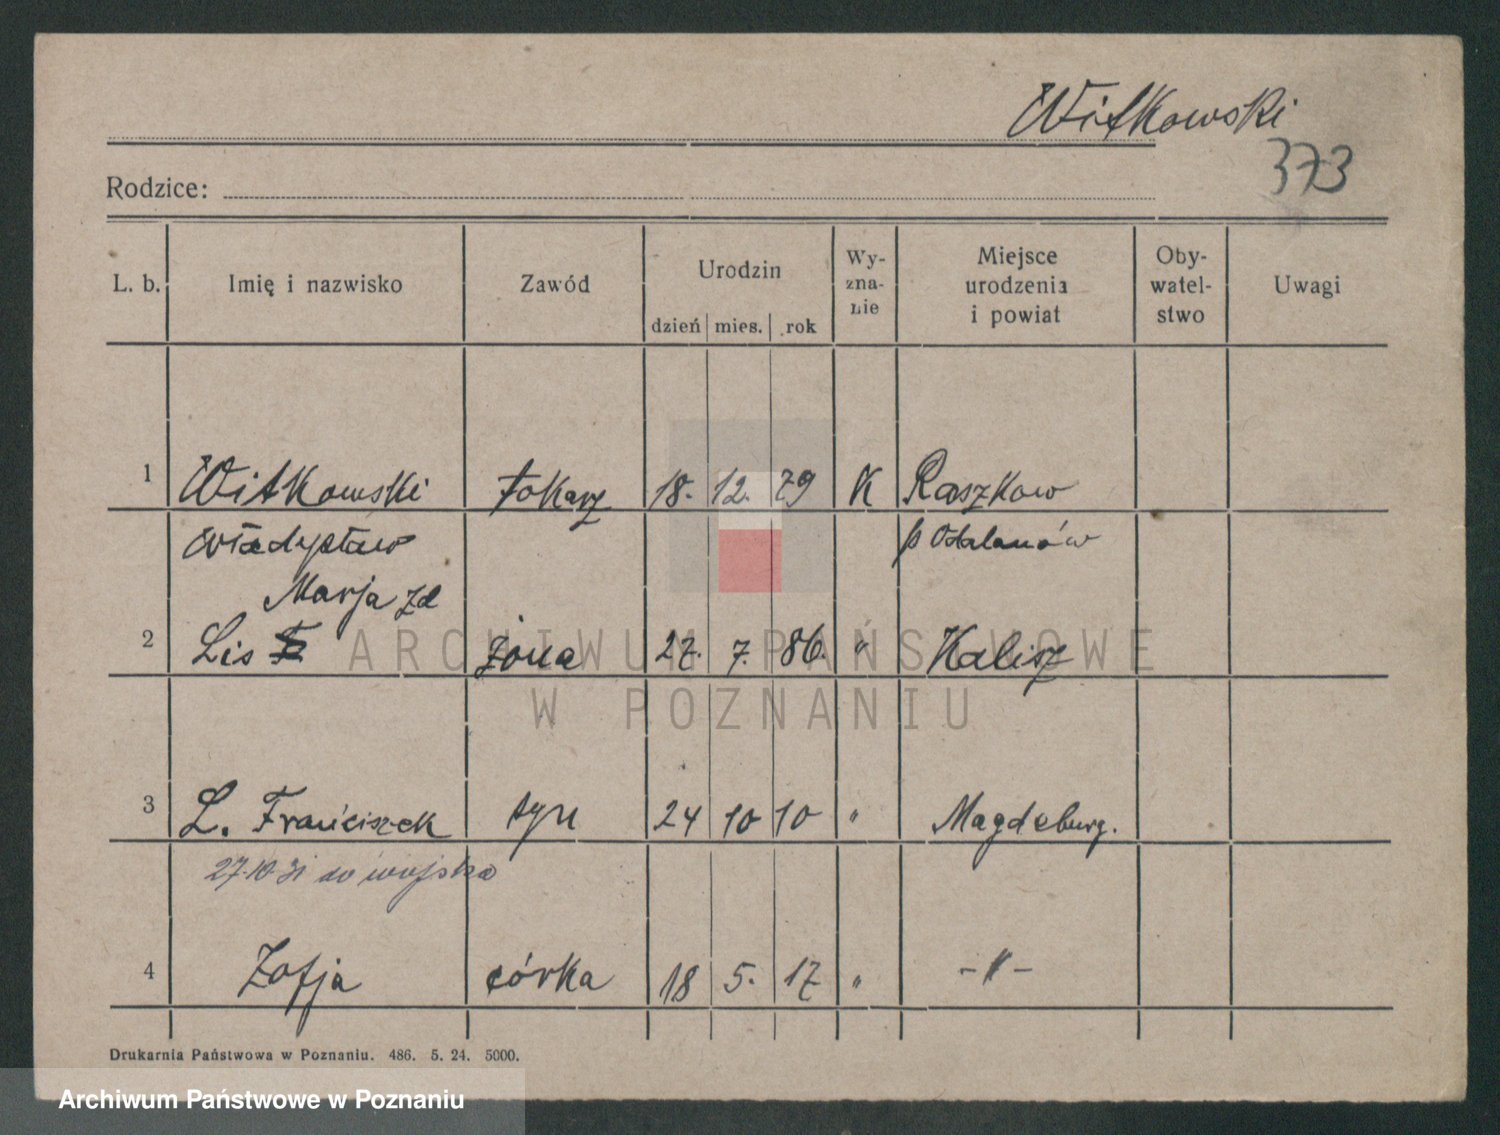 Witkowski
373
Rodzice:
L. b. Imię i nazwisko Zawód Urodzin dzień mies. rok Wy-zna-nie Miejsce urodzenia i powiat Oby-watel-stwo Uwagi
1 Witkowski tokarz 18. 12. 79 K Raszkow
Władysław p Odolanów
Marja zd
2 Lis żona 27. 7. 86. " Kalisz
3 L. Franciszek syn 24 10 10 " Magdeburg.
27.10.31 do wojska
4 Zofja córka 18 5. 17 " -"-
Drukarnia Państwowa w Poznaniu. 486. 5. 24. 5000.
ARCHIWUM PAŃSTWOWE
W POZNANIU
Archiwum Państwowe w Poznaniu